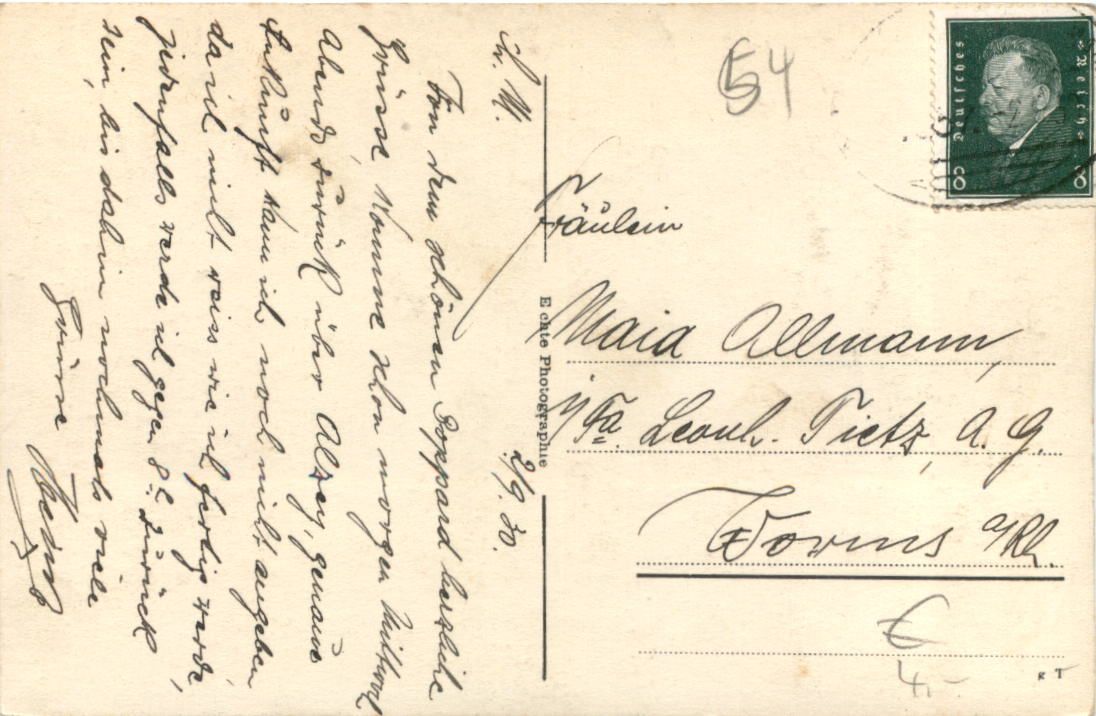 2/9. 30.
Von dem schönen Boppard herzliche
Grüsse, komme schon morgen Mittwoch
Abend zurück über Alzey, genaue
Ankunft kann ich noch nicht angeben
da ich nicht weiss wie ich fertig werde,
jedenfalls werde ich gegen 8 zurück
sein, bis dahin nochmals viele
Grüsse
Echte Photographie
54
Deutsches Reich
8 8
Fräulein
Maia Allmann,
i/Fa. Leonh. Tietz, A. G.
Worms a/Rh.
€
4,-
R T